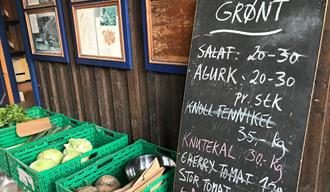 GRØNT
SALAT: 20-30
AGURK: 20-30
pr. stk
KNOLLFENNIKEL
35,-
KNUTEKÅL 30,-
CHERRY-TOMAT
STOR TOMAT